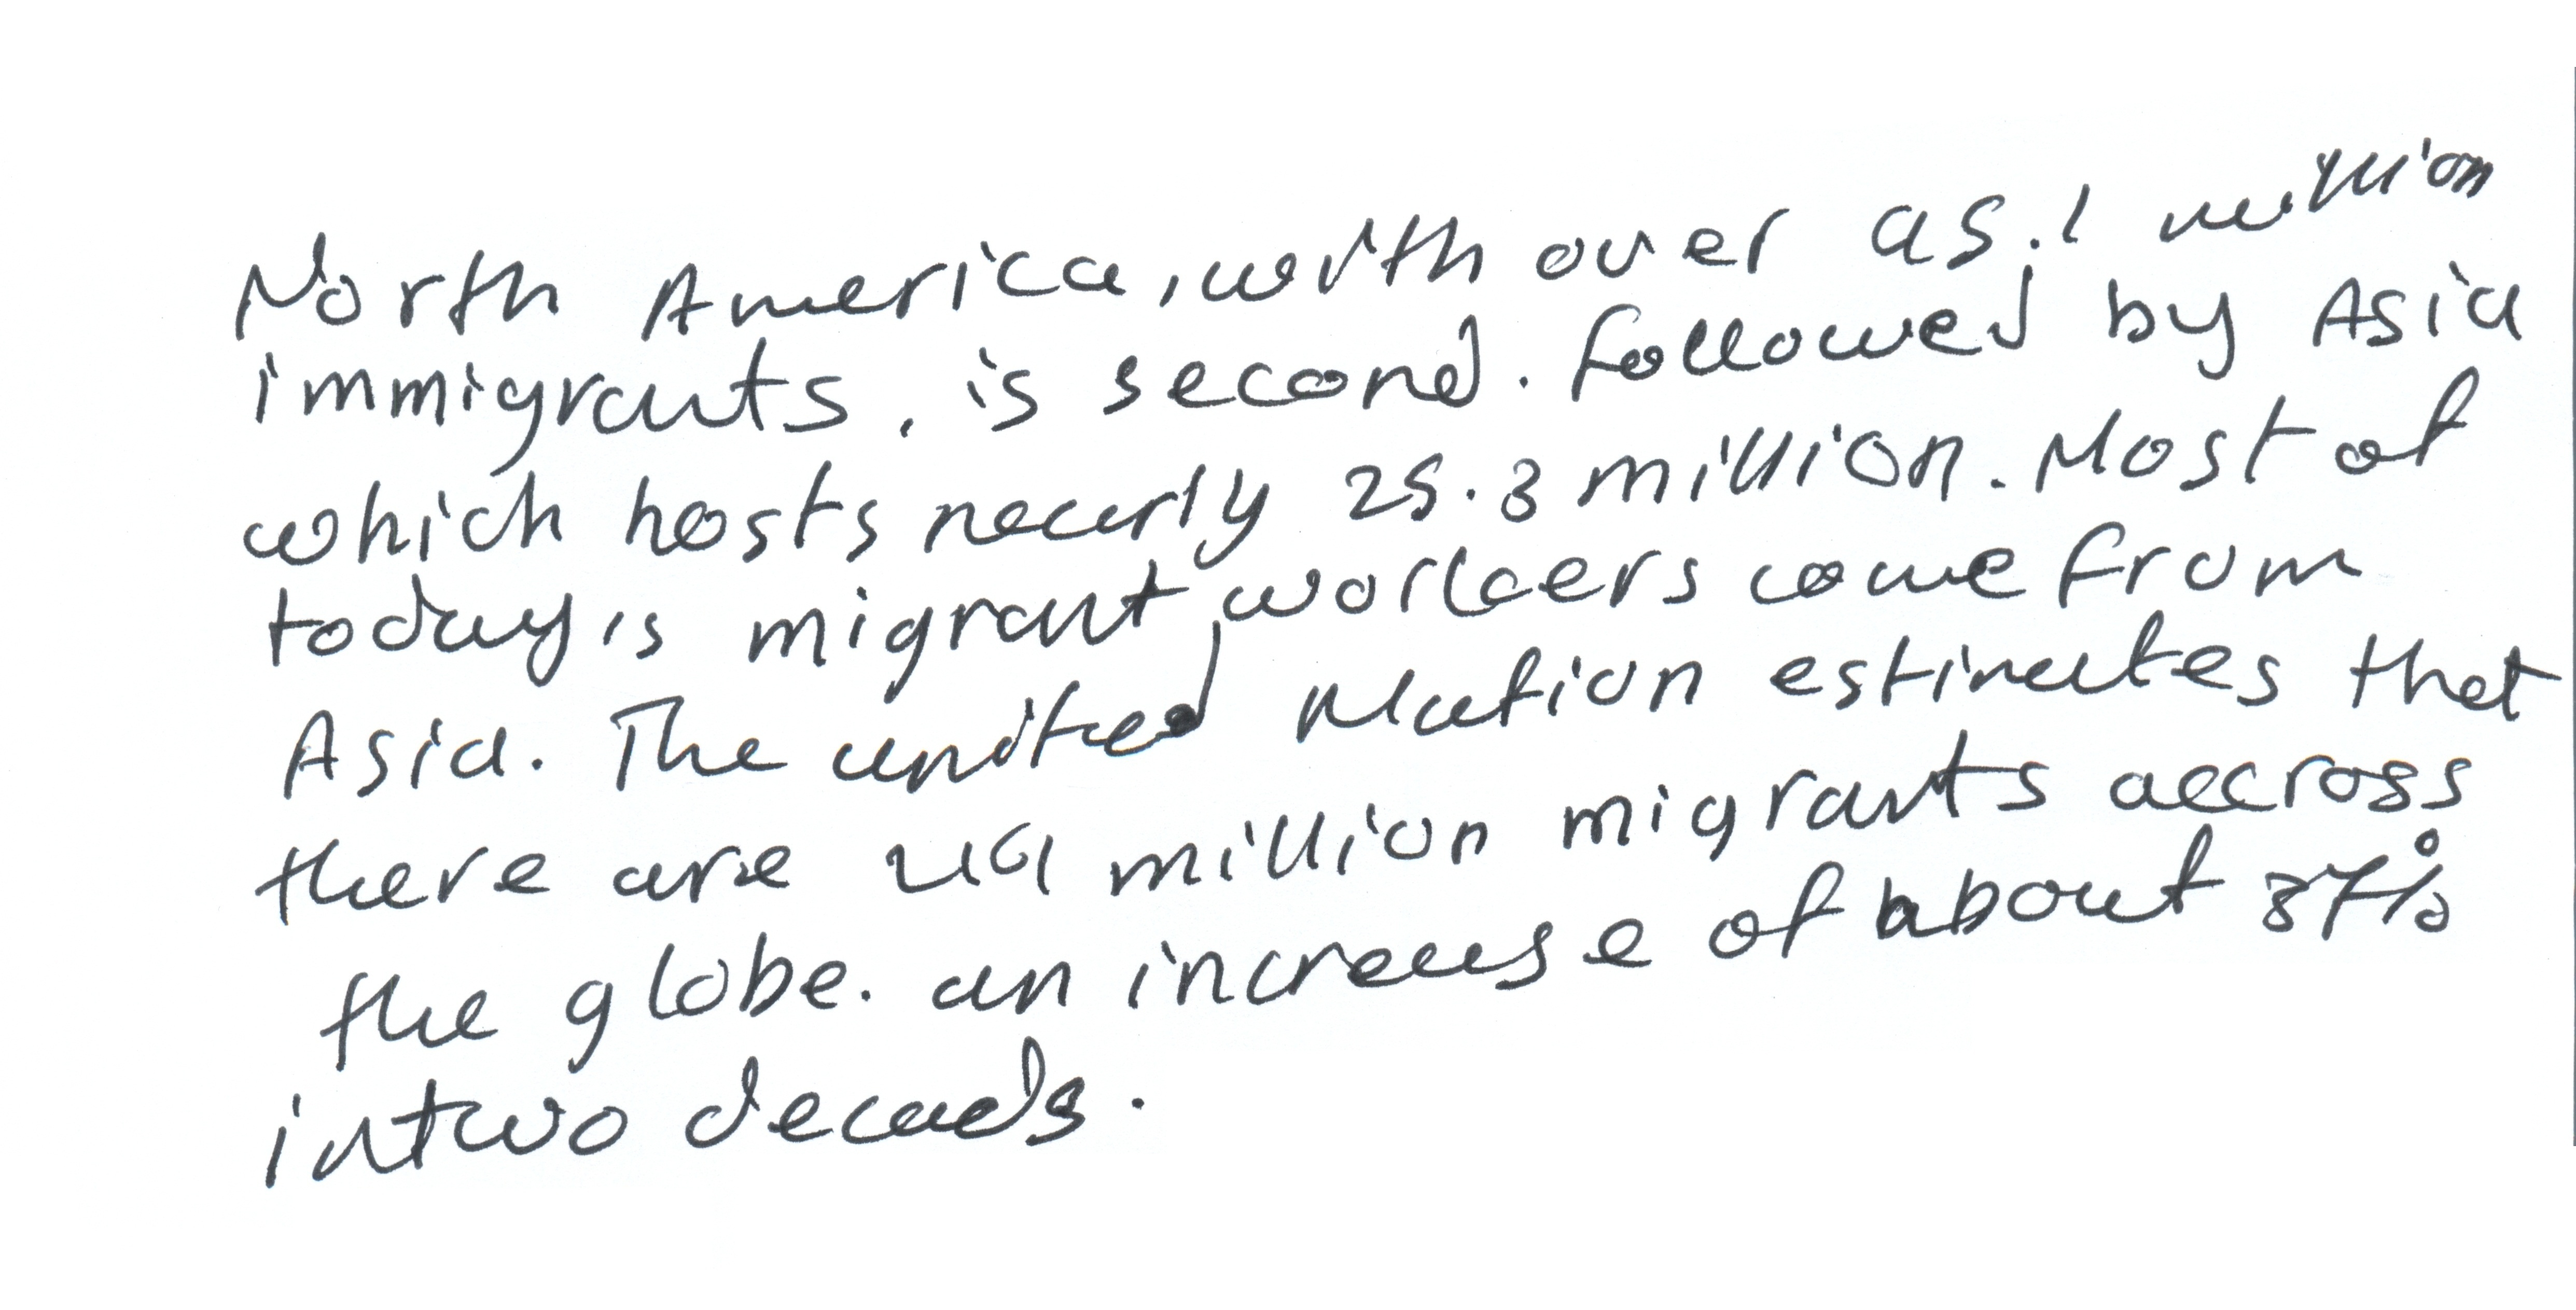 North America, with over as.1 million
immigrants, is second. followed by Asia
which hosts nearly 25.3 million. Most of
today,s migrant workers come from
Asia. The united Nation estimates that
there are 249 million migrants accross
the globe. an increase of about 37%
in two decads.